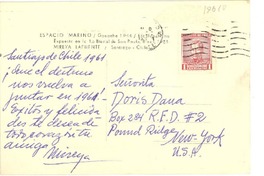 ESPACIO MARINO / Duccoatre 1962 /
Exposición en la VI Bienal de Sao Paulo
MIREYA LAFUENTE / Santiago - Chile
Santiago de Chile 1961
¡Que el destino
nos vuelva a
juntar en 1962!
Exitos y felicidad
les desea de
todo corazón tu
amiga
Mireya
Señorita
Doris Dana
Box 284 R.F.D. #2
Pound Ridge
New-York
U.S.A.